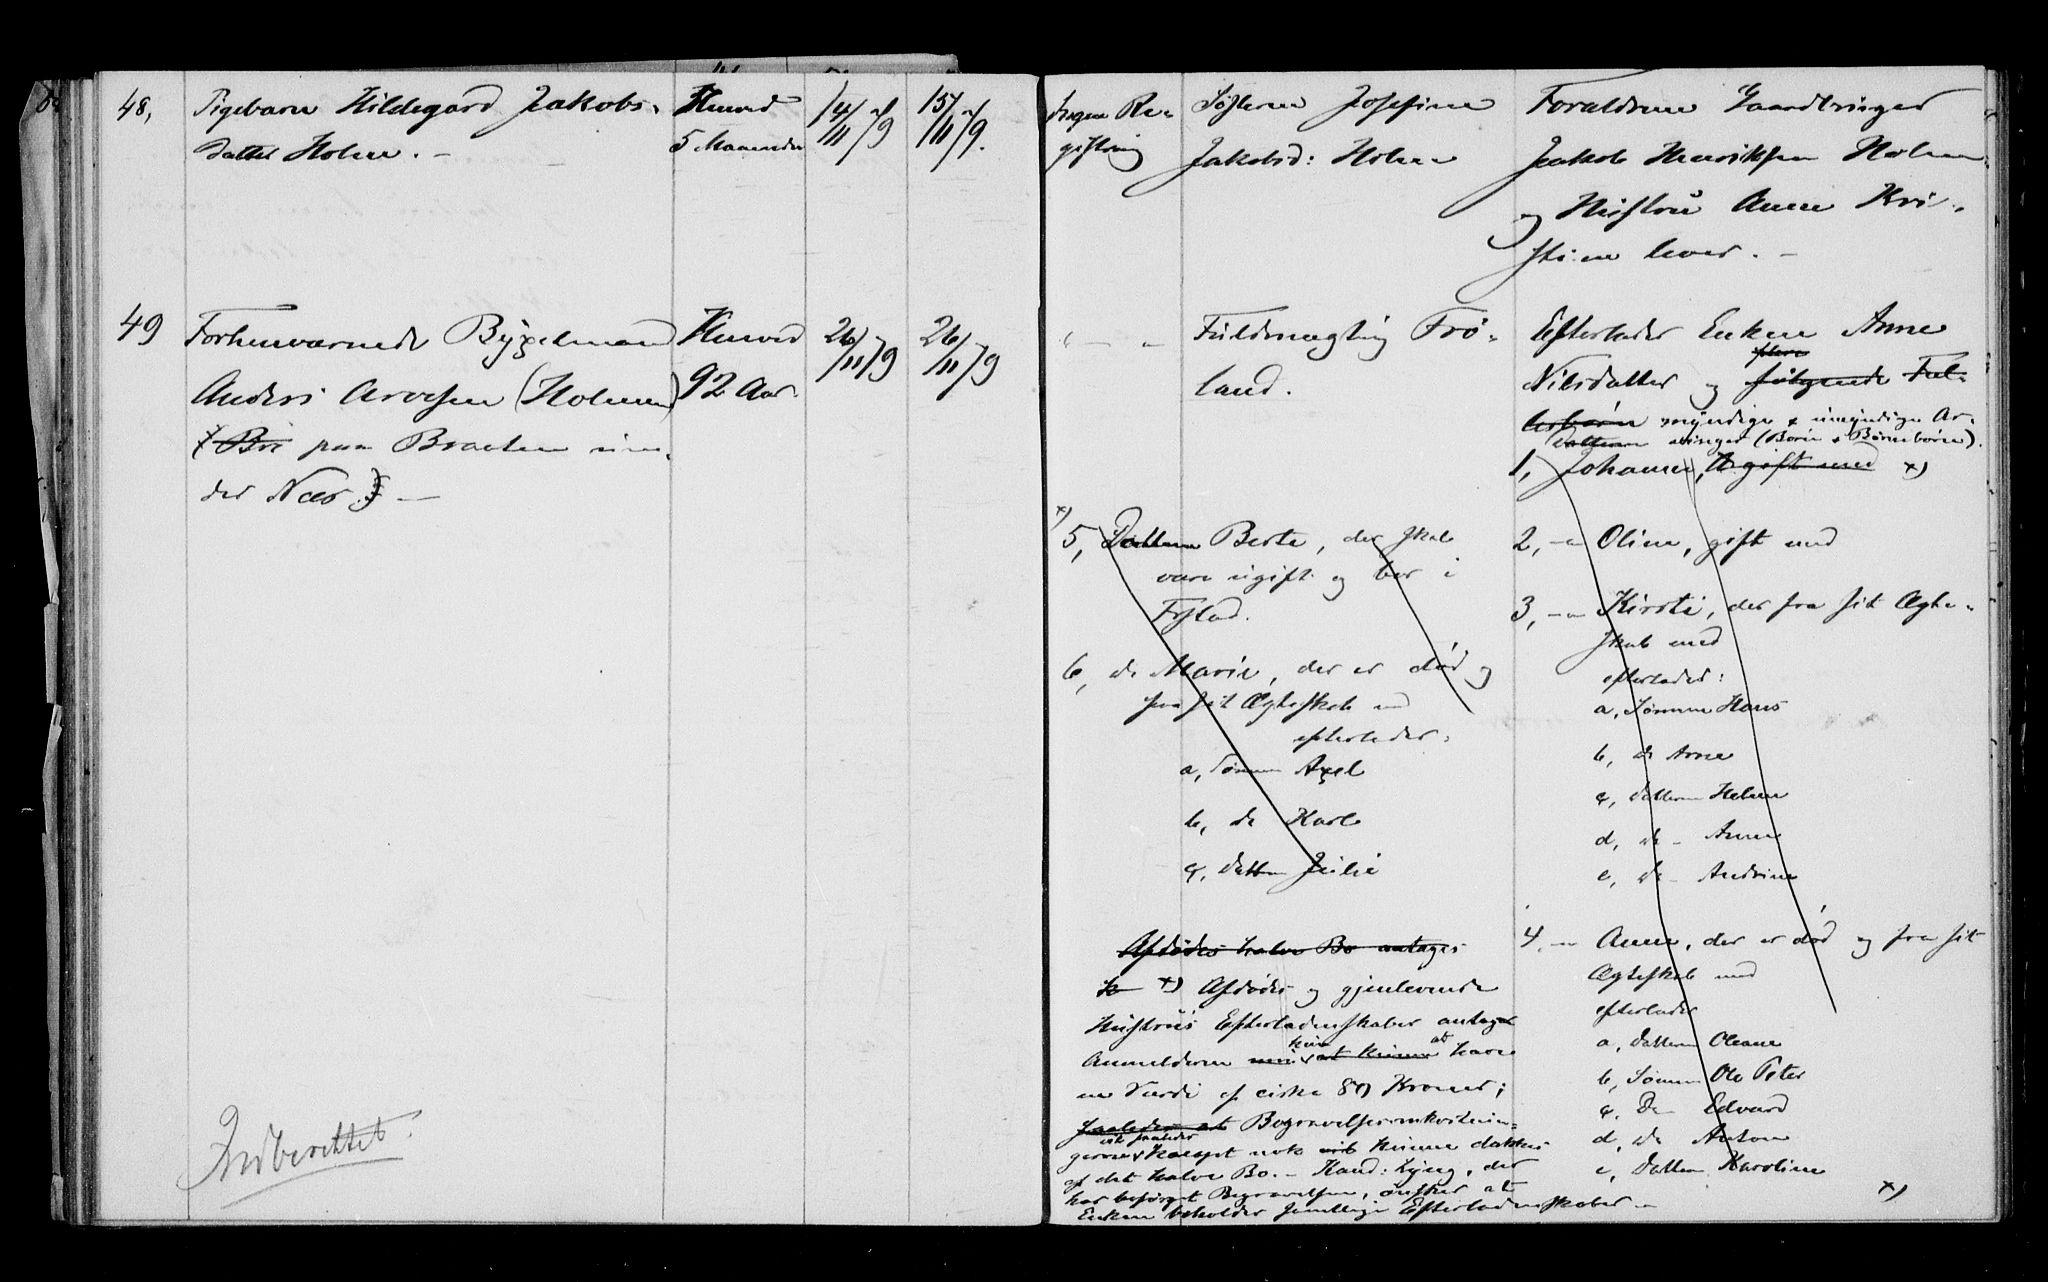 48, Pigebarn Hildegard Jakobs-
datter Holm. -
5 Maaneder
14/11 79
15/11 79.
Ingen Re-
gistrering
Søsteren Josefine
Jakobsd: Holm
Forældrene Gaardbruger
Jakob Henriksen Holm
og Hustru Anne Kri-
stine lever. -
49 Forhenværende Bygselmand
Anders Arvesen (Holmen)
(Bri paa Braaten un-
der Næs.) -
92 Aar.
26/11 79
26/11 79
" - "
Fuldmægtig Frø-
land.
Efterlader Enken Anne
Nilsdatter og følgende Fel-
flere
lesbørn myndige & umyndige Ar-
vinger (Børn & Børnebørn).
Datteren
1, Johanne, gift med x)
2, - " Oline, gift med
3, - " Kirsti, der fra sit Ægte-
skab med
efterlader:
a, Sønnen Hans
b, do Arne
c, Datteren Helene
d, do - Anne
e, do - Andrine
4, - " Anne, der er død og fra sit
Ægteskab med
efterlader
a, Datteren Oleane
b, Sønnen Ole Peter
c, Do Edvard
d, do Anton
e, Datteren Karoline
x)
x)
5, Datteren Berte, der skal
være ugift og bor i
6, do Marie, der er død og
fra sit Ægteskab med
efterlader:
a, Sønnen Axel
b, do Karl
c, Datteren Julie
Afdødes halve Bo antages
x) Afdødes og gjenlevende
Hustrus Efterladenskaber antager
Anmelderen kun at kunne at have
en Værdi af cirka 80 Kroner;
saaledes at Begravelsesomkostnin-
vil saaledes
gerne knapt nok vil kunne dækkes
af det halve Bo. - Kand: Lyng, der
har besørget Begravelsen, ønsker at
Enken beholder samtlige Efterladenskaber -
Indberettet.